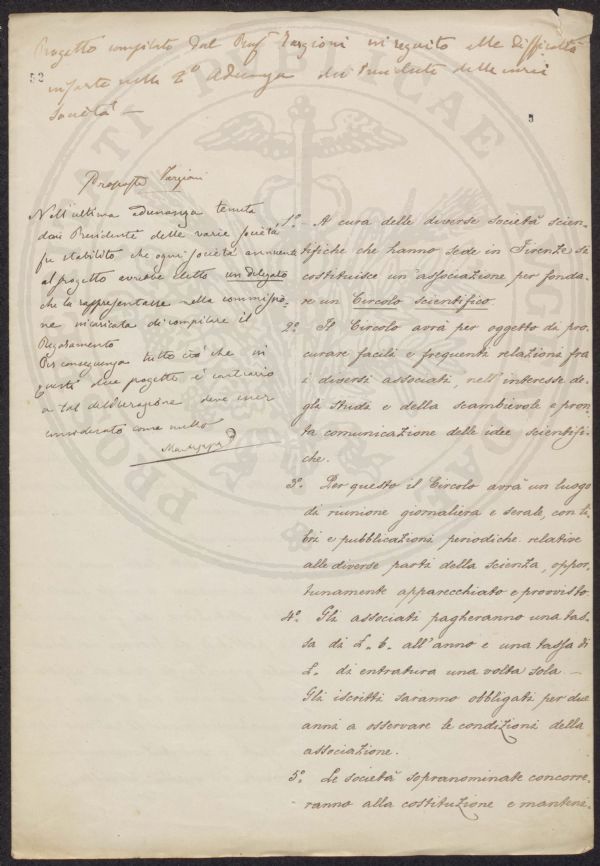 Progetto compilato dal Prof Targioni in seguito alle difficoltà
52
insorte nella 2ª Adunanza dei Presidenti delle varie
Società —
Proposta Targioni
Nell'ultima adunanza tenuta
dai Presidente delle varie società
fu stabilito che ogni società annuente
al progetto avrebbe eletto un delegato
che la rappresentasse nella commissio-
ne incaricata di compilare il
Regolamento
Per conseguenza tutto ciò che in
questi due progetti è contrario
a tal deliberazione deve esser
considerato come nullo
1º. A cura delle diverse società scien-
tifiche che hanno sede in Firenze si
costituisce un'associazione per fonda-
re un Circolo scientifico.
2º. Il Circolo avrà per oggetto di pro-
curare facili e frequenti relazioni fra
i diversi associati, nell'interesse de-
gli studi e della scambievole e pron-
ta comunicazione delle idee scientifi-
che.
3º. Per questo il Circolo avrà un luogo
di riunione giornaliera e serale, con li-
bri e pubblicazioni periodiche relative
alle diverse parti della scienza, oppor-
tunamente apparecchiato e provvisto.
4º. Gli associati pagheranno una tas-
sa di L. 6. all'anno e una tassa di
L. di entratura una volta sola —
Gli iscritti saranno obbligati per due
anni a osservare le condizioni della
associazione.
5º. Le società sopranominate concorre-
ranno alla costituzione e manteni-
PROBITATI PUBLICAE